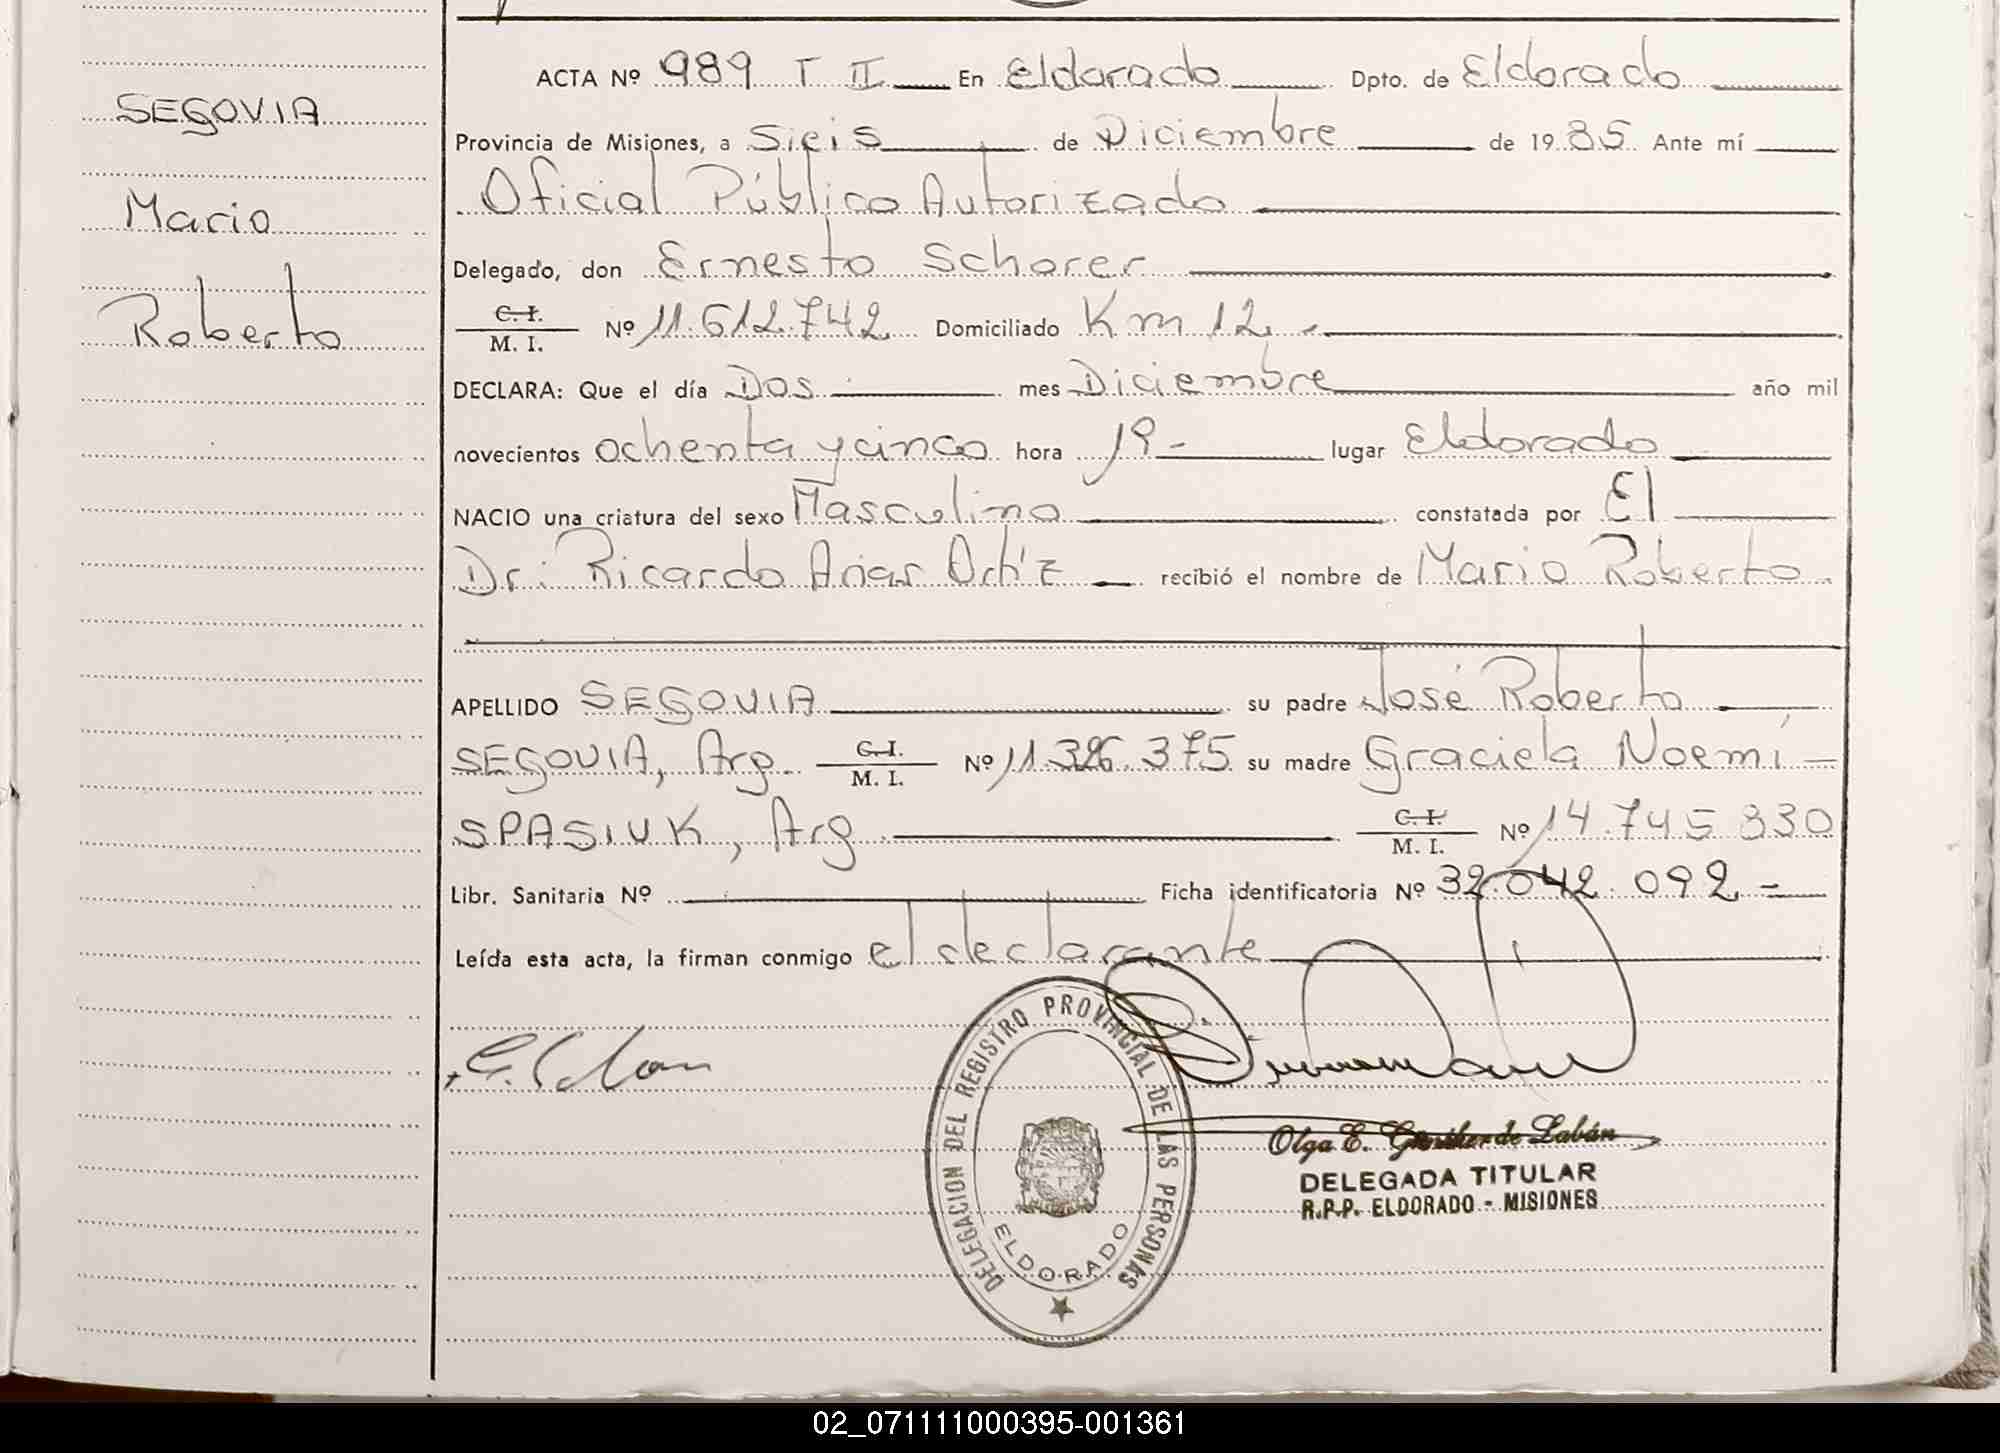 SEGOVIA
Mario
Roberto
ACTA Nº 989 T II En Eldorado Dpto. de Eldorado
Provincia de Misiones, a Seis de Diciembre de 1985 Ante mí
Oficial Público Autorizado
Delegado, don Ernesto Schorer
C. I.
M. I. Nº 11.612.742 Domiciliado Km 12.-
DECLARA: Que el día Dos mes Diciembre año mil
novecientos ochenta y cinco hora 19- lugar Eldorado
NACIO una criatura del sexo Masculino constatada por El
Dr. Ricardo Arias Ortíz recibió el nombre de Mario Roberto
APELLIDO SEGOVIA su padre José Roberto
SEGOVIA, Arg. C. I. M. I. Nº 11.326.375 su madre Graciela Noemí
SPASIUK, Arg. C. I. M. I. Nº 14.745 830
Libr. Sanitaria Nº Ficha identificatoria Nº 32.042.092-
Leída esta acta, la firman conmigo el declarante
DELEGACION DEL REGISTRO PROVINCIAL DE LAS PERSONAS
ELDORADO
Olga E. de Labán
DELEGADA TITULAR
R.P.P. ELDORADO - MISIONES
02_071111000395-001361